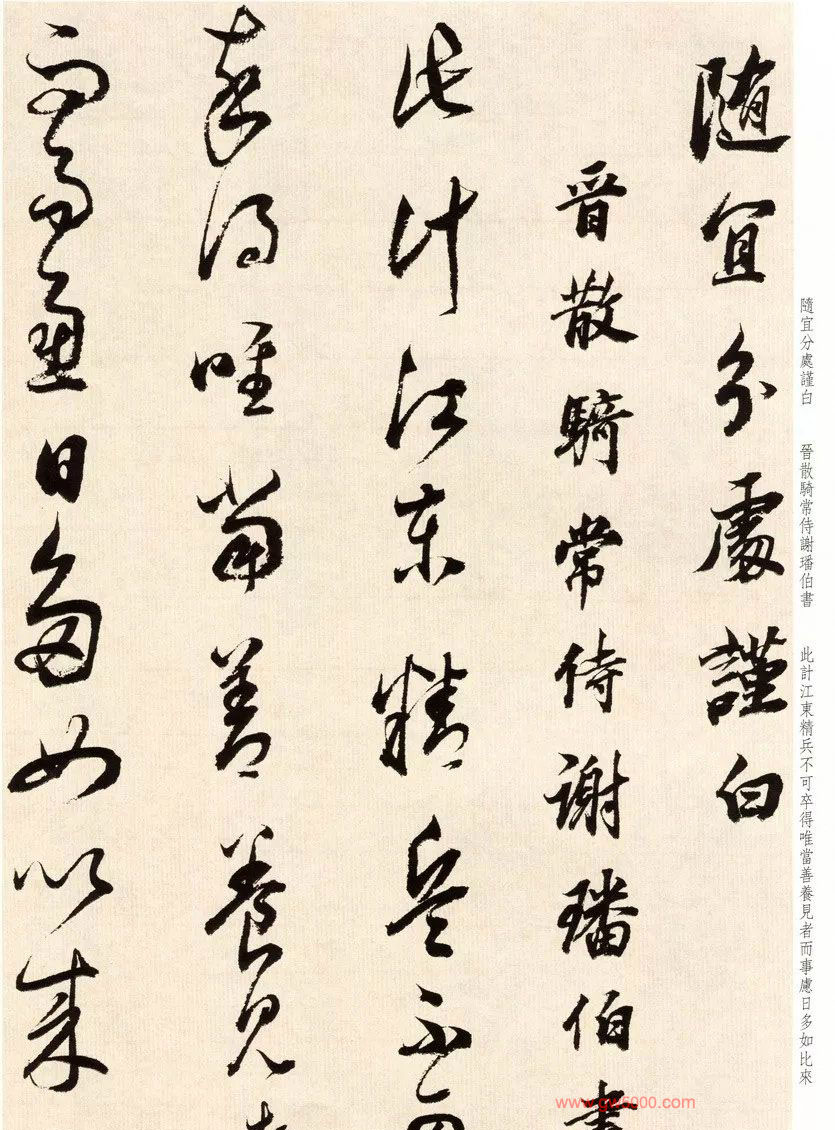 随宜分處謹白
晉散騎常侍謝璠伯書
此計江東精兵不可
卒得唯當善養見者
而事慮日多如比來
隨宜分處謹白 晉散騎常侍謝璠伯書 此計江東精兵不可卒得唯當善養見者而事慮日多如比來
www.gw5000.com